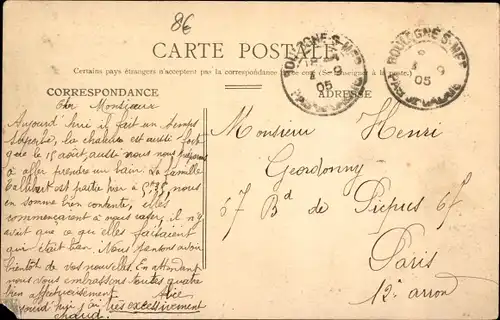 86
CARTE POSTALE
Certains pays étrangers n'acceptent pas la correspondance (Se renseigner à la poste).
CORRESPONDANCE
ADRESSE
BOULOGNE S-MER
9
05
PAS-DE-CALAIS
BOULOGNE S-MER
9
05
PAS-DE-CALAIS
Cher Monsieur
Aujourd'hui il fait un temps
superbe, la chaleur est aussi fort
que le 15 août, aussi nous nous
à aller prendre un bain. La famille
est partie hier à 5h35, nous
en somme bien contente, elles
commençaient à nous raser, il n'y
avait que ce qu'elles faisaient
qui était bien. Nous pensons avoir
bientôt de vos nouvelles. En attendant
nous vous embrassons toutes quatre
bien affectueusement. Alice
aujourd'hui il a très excessivement
chaud.
Monsieur Henri
67 Bd de Picpus 67
Paris
12e arron